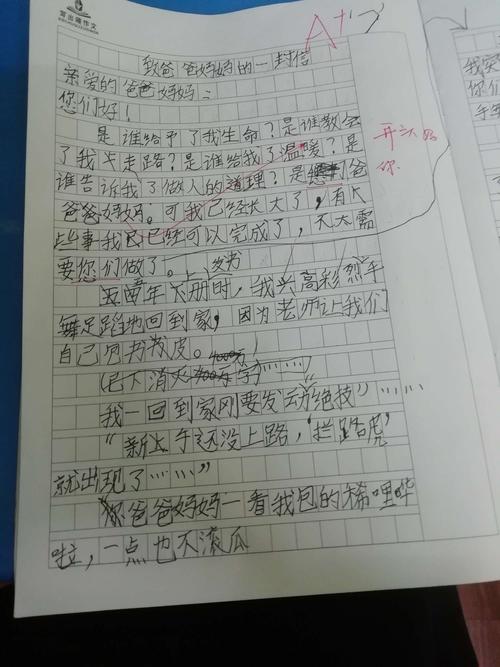 宫出端作文
A+
致爸爸妈妈的一封信
亲爱的爸爸妈妈:
您们好!
是谁给予了我生命?是谁教会
了我走路?是谁给我了温暖?是
谁告诉我了做人的道理?是您们爸
爸妈妈。可我已经长大了,有
些事我已经可以完成了,不太需
要您们做了。
五年 下册时,我兴高彩烈手
舞足蹈地回到家,因为老师让我们
自己包书皮。
(已下消灭 字)……
我一回到家刚要发动绝技"……
"新上手还没上路,'拦路虎'
就出现了……"
爸爸妈妈一看我包的稀哩哗
啦,一点也不滚瓜
开头
你